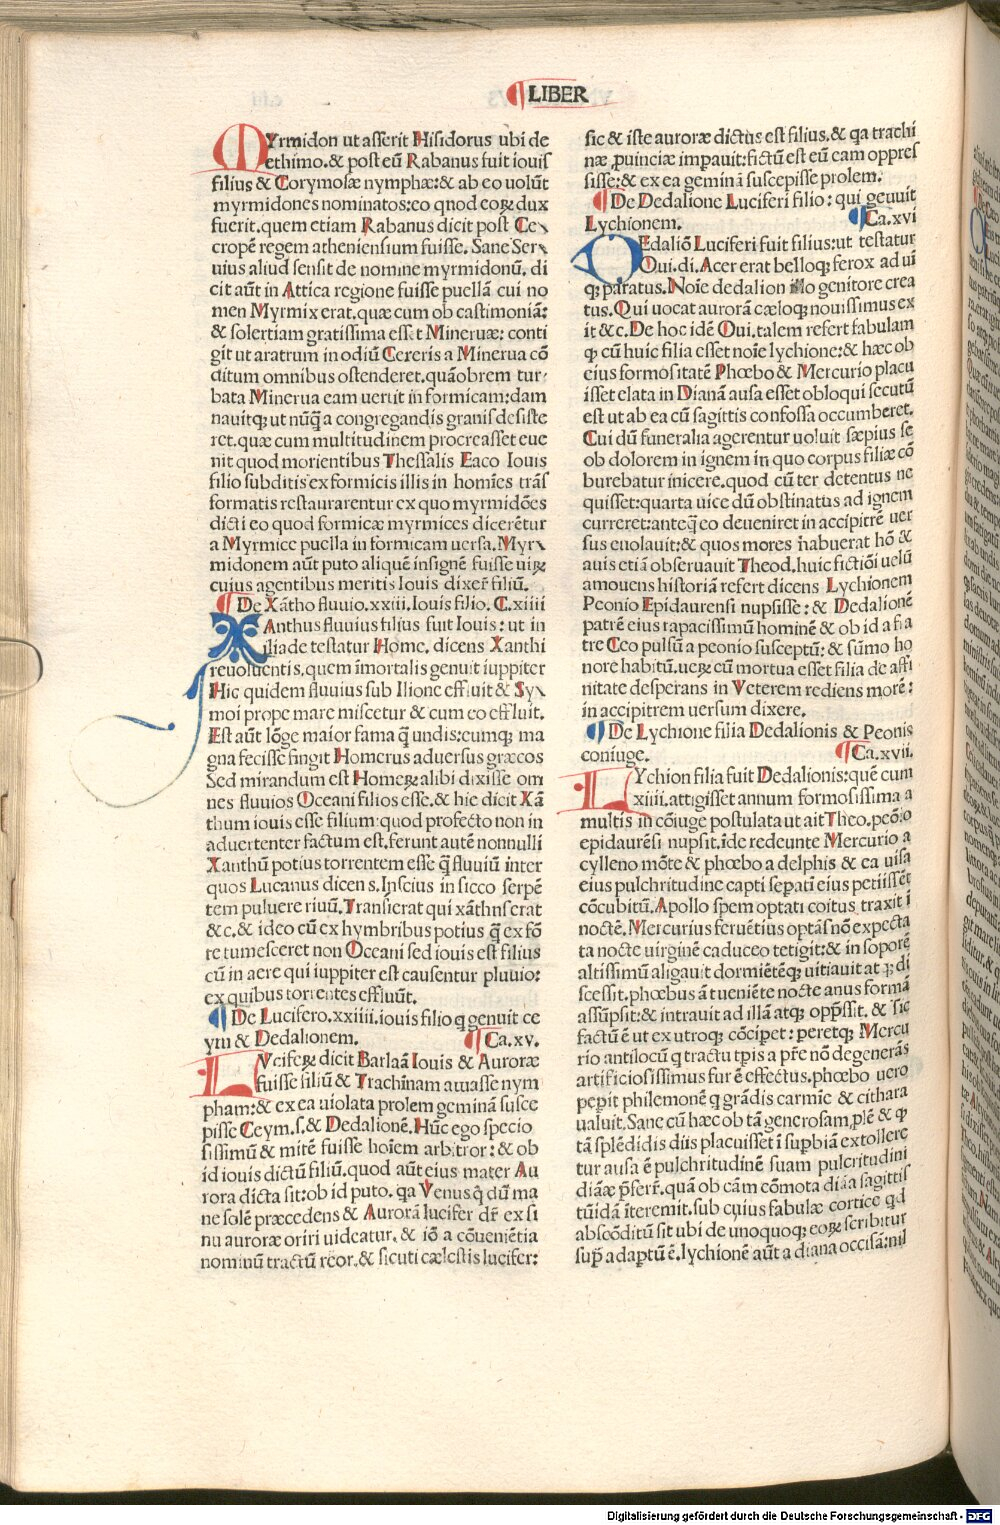 LIBER
MYrmidon ut asserit Hisidorus ubi de
ethimo. & post eū Rabanus fuit iouis
filius & Corymosæ nymphæ: & ab eo uolūt
myrmidones nominatos: eo qnod eoꝝ dux
fuerit. quem etiam Rabanus dicit post Ce⹀
cropē regem atheniensium fuisse. Sane Ser⹀
uius aliud sensit de nomine myrmidonū. di
cit aūt in Attica regione fuisse puellā cui no
men Myrmix erat. quæ cum ob castimoniā:
& solertiam gratissima esset Mineruæ: conti
git ut aratrum in odiū Cereris a Minerua cō
ditum omnibus ostenderet. quāobrem tur⹀
bata Minerua eam uertit in formicam: dam
nauitqꝫ ut nūq̄ a congregandis granis desiste
ret. quæ cum multitudinem procreasset eue
nit quod morientibus Thessalis Eaco Iouis
filio subditis ex formicis illis in homīes trās
formatis restaurarentur ex quo myrmidōes
dicti eo quod formicæ myrmices dicerētur
a Myrmice puella in formicam uersa. Myr⹀
midonem aūt puto aliquē insignē fuisse uiꝝ
cuius agentibus meritis Iouis dixer̄ filiū.
De Xātho fluuio. xxiii. Iouis filio. C. xiiii
XAnthus fluuius filius fuit Iouis: ut in
iliade testatur Home. dicens Xanthi
reuoluentis, quem īmortalis genuit iuppiter
Hic quidem fluuius sub Ilione effluit & Sy⹀
moi prope mare miscetur & cum eo effluit.
Est aūt lōge maior fama q̄ undis: eumqꝫ ma
gna fecisse fingit Homerus aduersus græcos
Sed mirandum est Homeꝝ alibi dixisse om
nes fluuios Oceani filios esse. & hic dicit Xā
thum iouis esse filium: quod profecto non in
aduertenter factum est. ferunt autē nonnulli
Xanthū potius torrentem esse q̄ fluuiū inter
quos Lucanus dicens. Inscius in sicco serpē
tem puluere riuū. Transierat qui xāthns erat
&c. & ideo cū ex hymbribus potius q̄ ex fō
te tumesceret non Oceani sed iouis est filius
cū in aere qui iuppiter est causentur pluuiȩ:
ex quibus torrentes effluūt.
De Lucifero. xxiiii. iouis filio q genuit ce
ym & Dedalionem. Ca. xv.
LVcifeꝝ dicit Barlaā Iouis & Auroræ
fuisse filiū & Trachīnam amasse nym
pham: & ex ea uiolata prolem geminā susce
pisse Ceym. s. & Dedalionē. Hūc ego specio
sissimū & mitē fuisse hoīem arbitror: & ob
id iouis dictū filiū. quod aūt eius mater Au
rora dicta sit: ob id puto. qa Venus q̄ dū ma
ne solē præcedens & Aurorā lucifer dr̄ ex si
nu auroræ oriri uideatur. & iō a cōueniētia
nominū tractū reor. & sicuti cælestis lucifer:
sic & iste auroræ dictus est filius. & qa trachi
næ ꝓuinciæ impauit: fictū est eū eam oppres
sisse: & ex ea geminā suscepisse prolem.
De Dedalione Luciferi filio: qui genuit
Lychionem. Ca. xvi
DEdaliō Luciferi fuit filius: ut testatur
Oui. di. Acer erat belloqꝫ ferox ad uī
qꝫ paratus. Noīe dedalion illo genitore crea
tus. Qui uocat aurorā cæloqꝫ nouissimus ex
it &c. De hoc idē Oui. talem refert fabulam
ꝙ cū huic filia esset noīe lychione: & hæc ob
eius formositatē Phœbo & Mercurio placu
isset elata in Dianā ausa esset obloqui secutū
est ut ab ea cū sagittis confossa occumberet.
Cui dū funeralia agerentur uoluit sæpius se
ob dolorem in ignem in quo corpus filiæ cō
burebatur inicere. quod cū ter detentus ne
quisset: quarta uice dū obstinatus ad ignem
curreret: anteq̄ eo deueniret in accipitrē uer
sus euolauit: & quos mores habuerat hō &
auis etiā obseruauit Theod. huic fictiōi uelū
amouens historiā refert dicens Lychionem
Peonio Epidaurensi nupsisse: & Dedalionē
patrē eius rapacissimū hominē & ob id a fra
tre Ceo pulsū a peonio susceptū: & sūmo ho
nore habitū. ueꝝ cū mortua esset filia de affi
nitate desperans in Veterem rediens morē:
in accipitrem uersum dixere.
De Lychione filia Dedalionis & Peonis
coniuge. Ca. xvii.
LYchion filia fuit Dedalionis: quē cum
xiiii. attigisset annum formosissima a
multis in cōiuge postulata ut ait Theo. peōio
epidaurēsi nupsit. īde redeunte Mercurio a
cylleno mōte & phœbo a delphis & ea uisa
eius pulchritudine capti sepatī eius petiissēt
cōcubitū. Apollo spem optati coitus traxit ī
noctē. Mercurius feruētius optās nō expecta
ta nocte uirginē caduceo tetigit: & in soporē
altissimū aligauit dormiētēqꝫ uitiauit atqꝫ di
scessit. phœbus āt ueniēte nocte anus formā
assūpsit: & intrauit ad illā atqꝫ opp̄ssit. & sic
factū ē ut ex utroqꝫ cōcipet: peretqꝫ Mercu
rio antilocū q tractu tp̄is a pr̄e nō degenerās
artificiosissimus fur ē effectus. phœbo uero
pepit philemonē q grādis carmīe & cithara
ualuit. Sane cū hæc ob tā generosam, plē & ꝙ
tā splēdidis diis placuisset ī supbiā extollere
tur ausa ē pulchritudinē suam pulcritudini
diāæ p̄ferr̄. quā ob cām cōmota diāa sagittis
tūidā īteremit. sub cuius fabulæ cortice qd
abscōditū sit ubi de unoquoqꝫ eoꝝ scribitur
sup̄ adaptū ē. lychionē aūt a diana occisā: nil
Digitalisierung gefördert durch die Deutsche Forschungsgemeinschaft - DFG